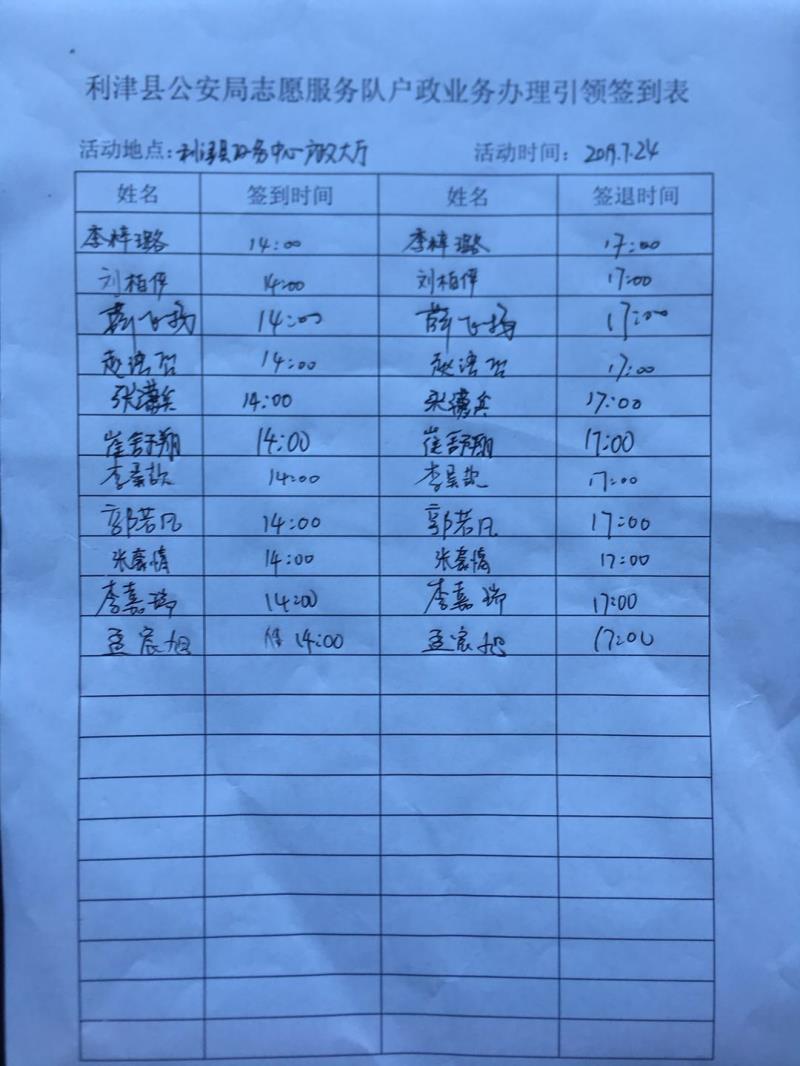 利津县公安局志愿服务队户政业务办理引领签到表
活动地点：利津县政务中心户政大厅 活动时间：2019.7.24
姓名 签到时间 姓名 签退时间
李梓璐 14:00 李梓璐 17:00
刘柏伴 14:00 刘柏伴 17:00
薛飞扬 14:00 薛飞扬 17:00
14:00 17:00
14:00 17:00
崔舒翔 14:00 崔舒翔 17:00
14:00 17:00
郭若凡 14:00 郭若凡 17:00
张豪情 14:00 张豪情 17:00
李嘉瑞 14:00 李嘉瑞 17:00
孟宸旭 14:00 孟宸旭 17:00